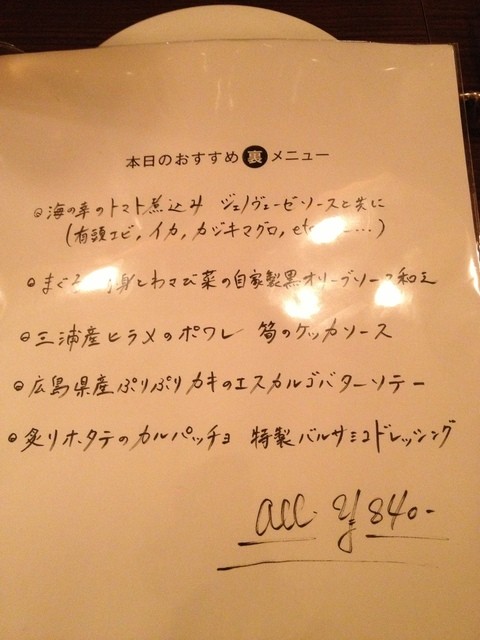 本日のおすすめ 裏 メニュー
海の幸のトマト煮込み ジェノヴェーゼソースと共に
(有頭エビ, イカ, カジキマグロ, etc......)
まぐろ しわさび菜の自家製黒オリーブソース和え
三浦産ヒラメのポワレ 筍のケッカソース
広島県産ぷりぷりカキのエスカルゴバターソテー
炙りホタテのカルパッチョ 特製バルサミコドレッシング
all ¥840-